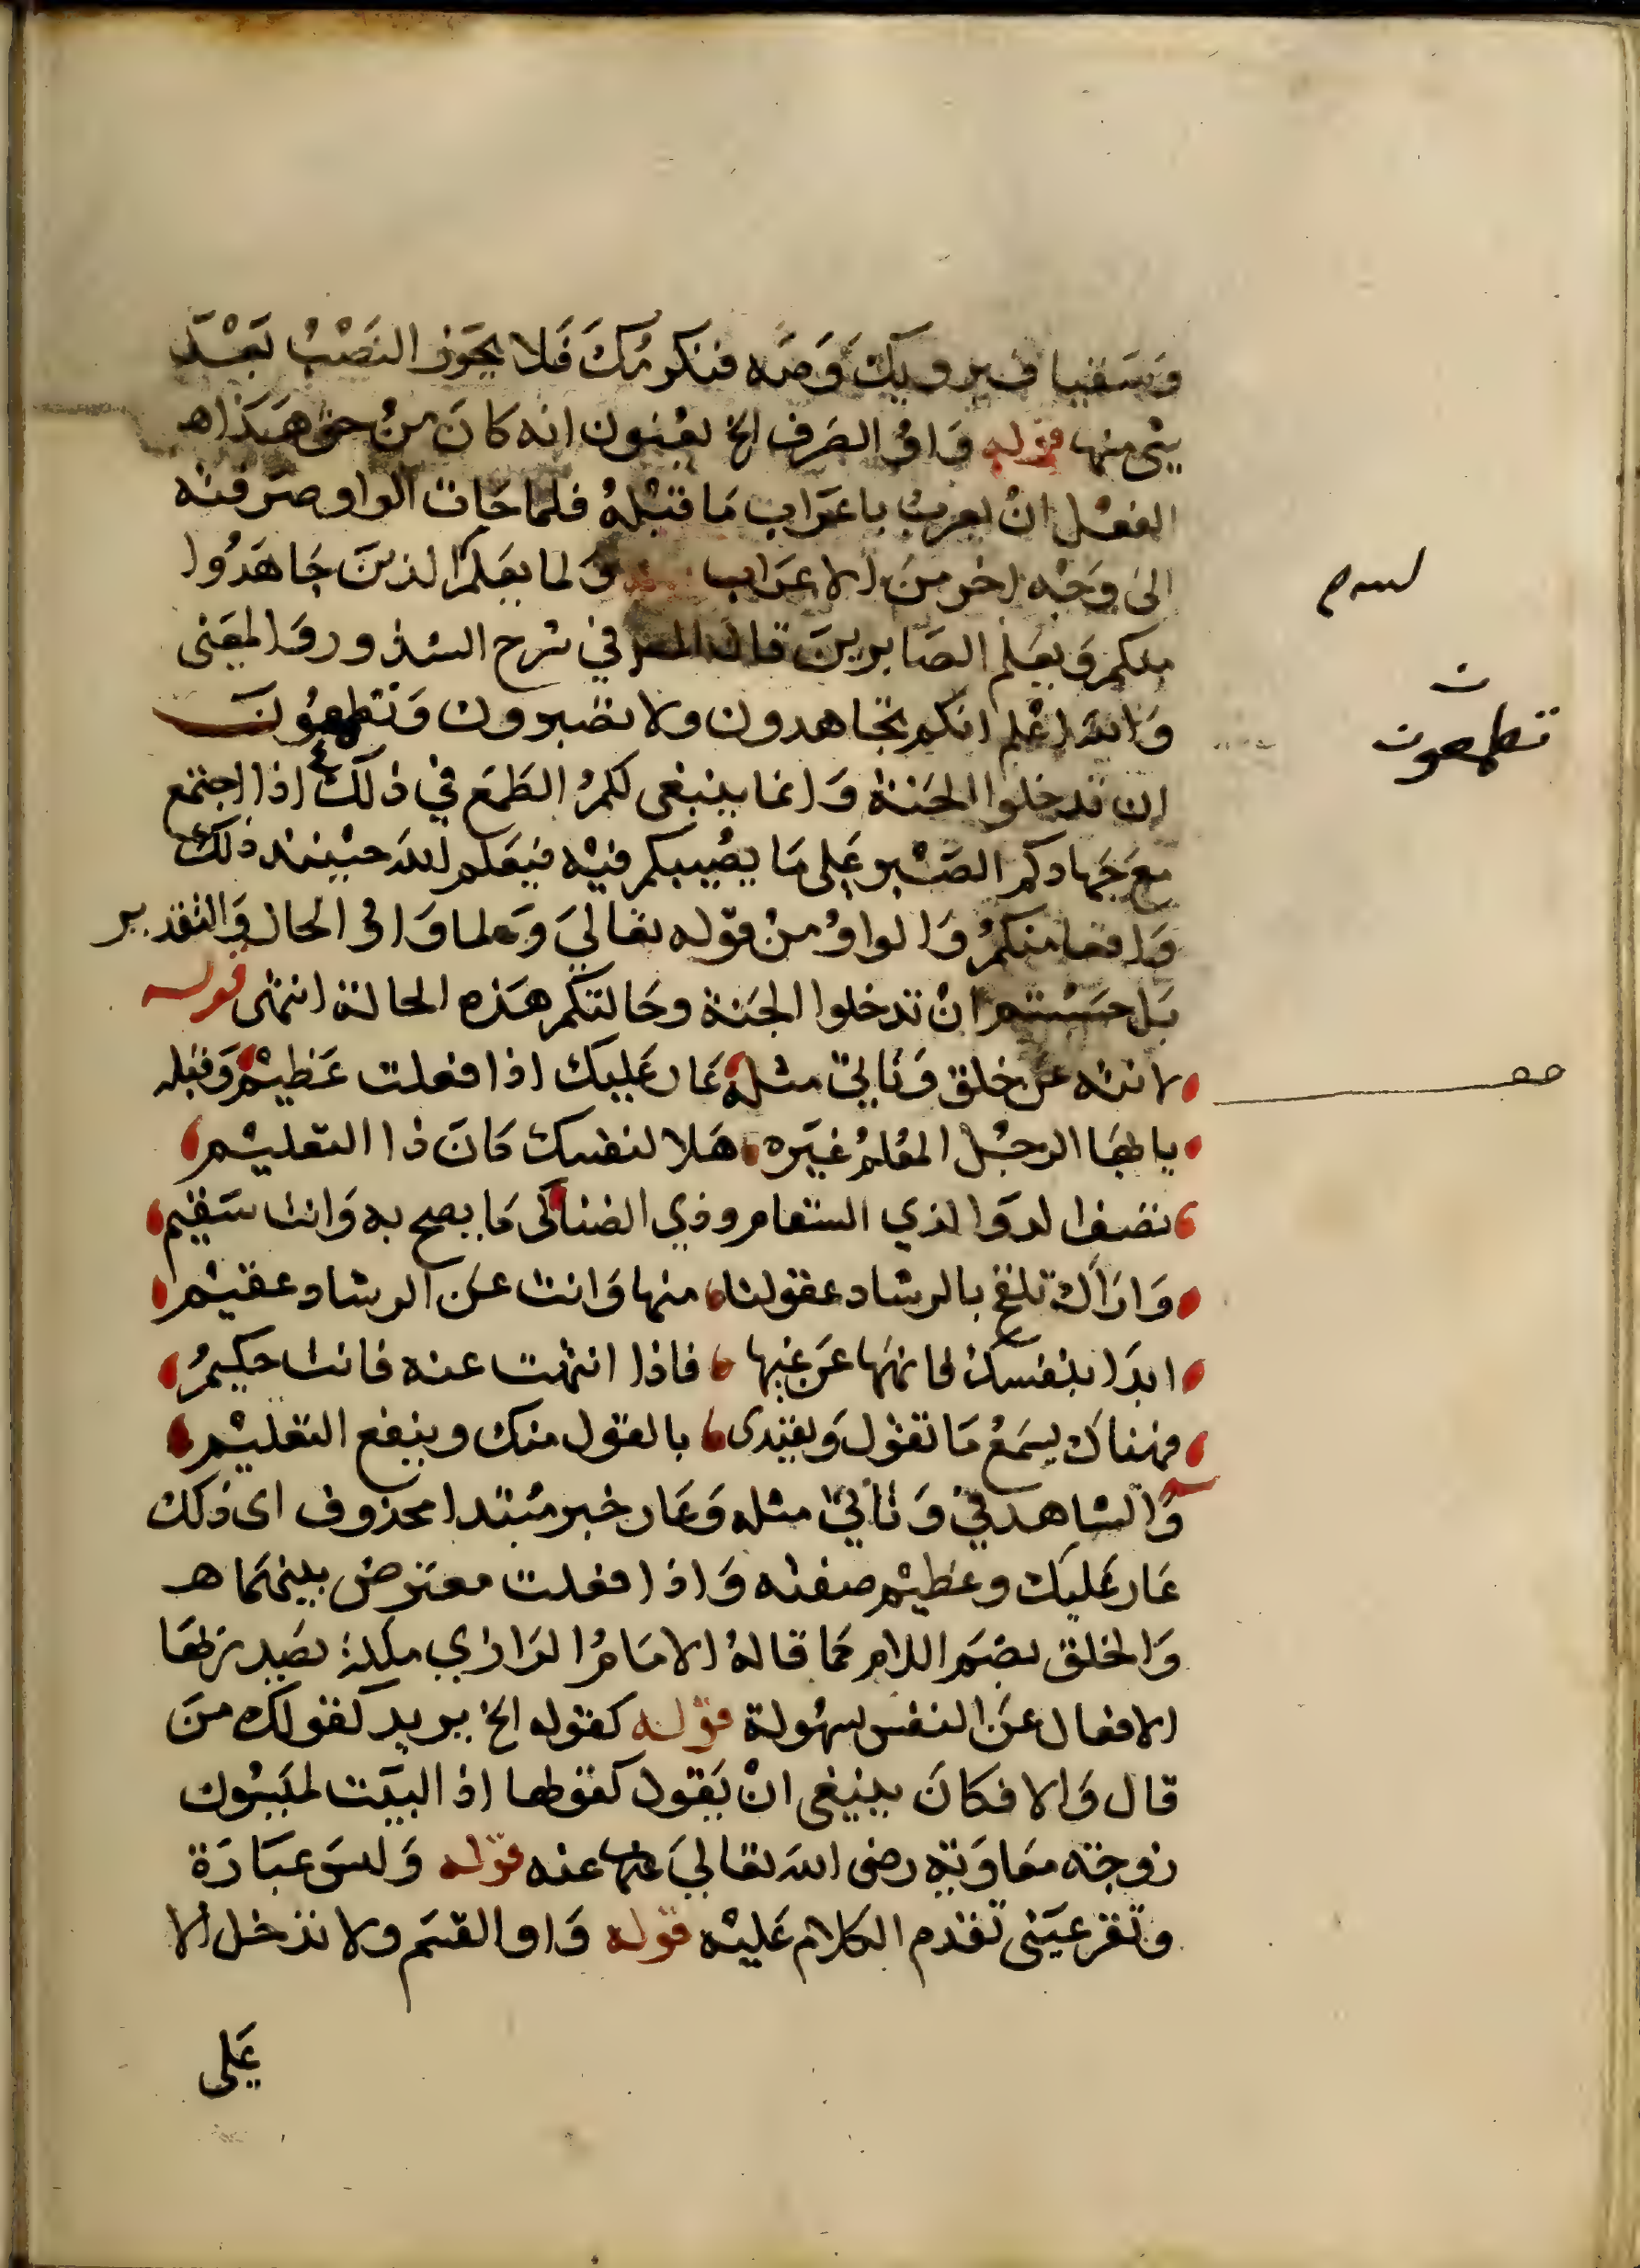 وَسَقيا فيرويك وَصَه فنكرمُكَ فَلا يجَوز النَصْبُ بَعْدَ
شيء منها قوله وَاوُ الصَرف الخ يعْنون انه كانَ منْ حق هَذا
الفعْل انْ يعرب باعرَاب مَا قبْلهُ فلما جَات الواو صرَفته
الىَ وَجْه اخر منَ الاعرَاب وَلما يعَلم الذينَ جَاهَدُوا
منكم وَيعَلم الصَابرينَ قال المص في شرح الشذور وَالمعَنى
وَالله اعْلم انكم تجَاهدون ولا تصْبرون وَتطمعُونَ
ان تدخلوا الجَنة وَانما ينبغى لكمُ الطَمَع في ذلك اذا اجتمع
معَ جَهادكم الصَبْر عَلى مَا يصُيبكم فيْه فيَعلم اللهَ حيْنئذ ذلك
وَاقعا منكمُ وَالواوُ منْ قوْله تعَاليَ وَلما وَاوُ الحال وَالتقدير
بَل حسَبْتم انْ تدخلوا الجَنة وحَالتكم هَذه الحالة انتهى قوله
لا تنه عَن خلق وَتَاتيَ مثله عَار عَليك اذا فعَلت عَظيْم وَقبله
يا ايهَا الرجُل المعُلمُ غيَره هَلا لنفسك كانَ ذا التعَليْم
تصَف الدوَا لذي السقام وذي الضنا كى مَا يصح به وَانت سَقيم
وَارَاك تلقح بالرشاد عقولنا منها وَانت عَن الرشاد عقيْم
ابدَا بنفسك فانهَهَا عَن غيها فاذا انتهت عنه فانت حكيمُ
فهناك يسمَعُ مَا تقول وَيقتدى بالقول منك وينفع التعَليْم
وَالشاهد في وَتَأتيَ مثله وَعَار خبر مبْتدا محذوف اى ذلك
عَار عَليك وعظيْم صفته وَاذا فعَلت معَترض بينهَما ه
وَالخلق بضَم اللام كما قالهُ الامَامُ الرَازي ملكة تصَدر بهَا
الافعال عنَ النفس بسهُولة قوْله كقوله الخ يريد كقولك منَ
قال وَالا فكانَ ينبغى انْ يَقول كقولها اذ البيَت لميَسُون
زوجة معَاويَة رضى الله تعَاليَ عنها عنه قوْله وَلبسَ عبَادَة
وتقرعيَنى تقدم الكلام عَليْه قوْله وَاو القسَم ولا تدخل الا
عَلى
تطمعون
صص